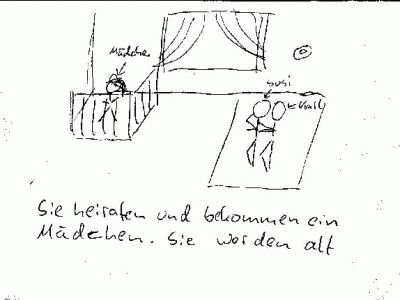 Mädchen
Susi
Sie heiraten und bekommen ein
Mädchen. Sie werden alt